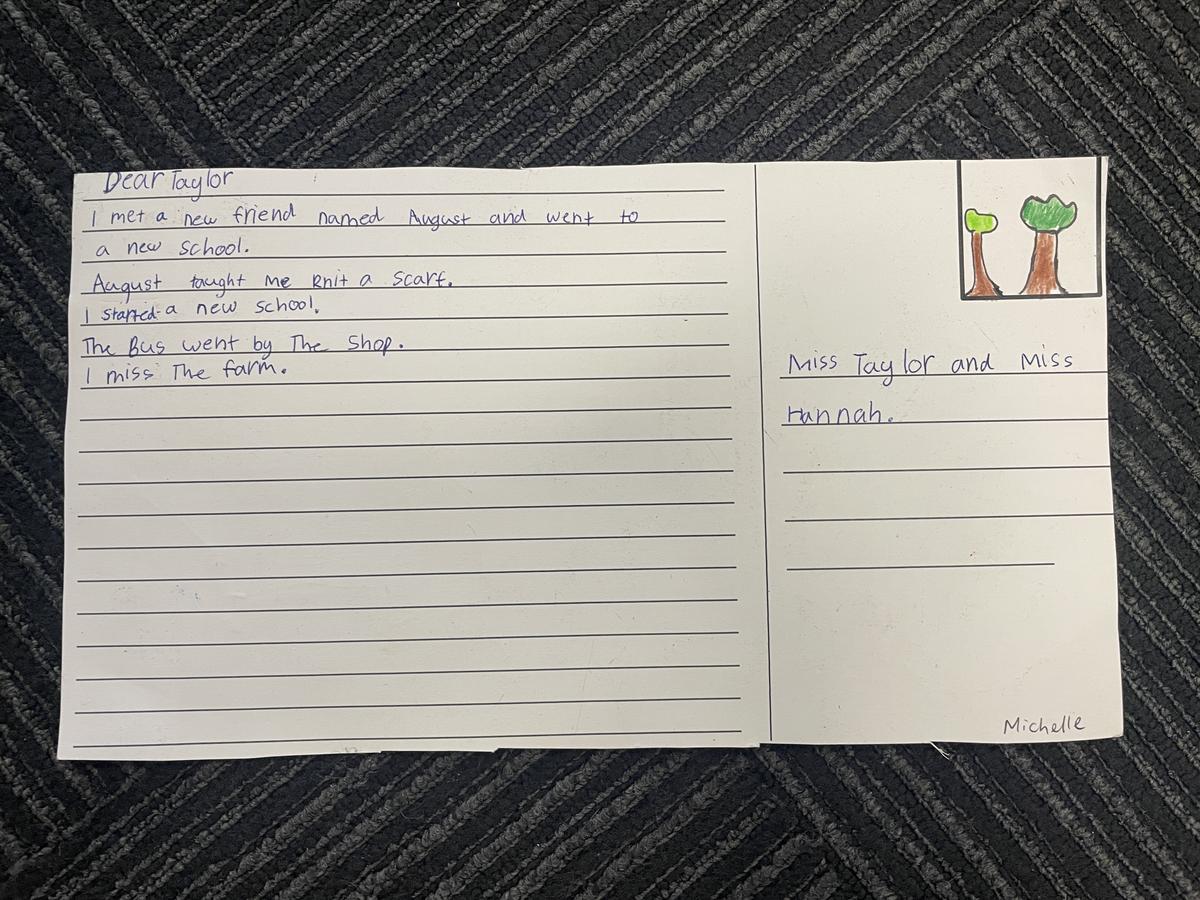 Dear Taylor
I met a new friend named August and went to
a new school.
August taught me knit a scarf.
I started a new school.
The Bus went by The Shop.
I miss The farm.
Miss Taylor and Miss
Hannah.
Michelle